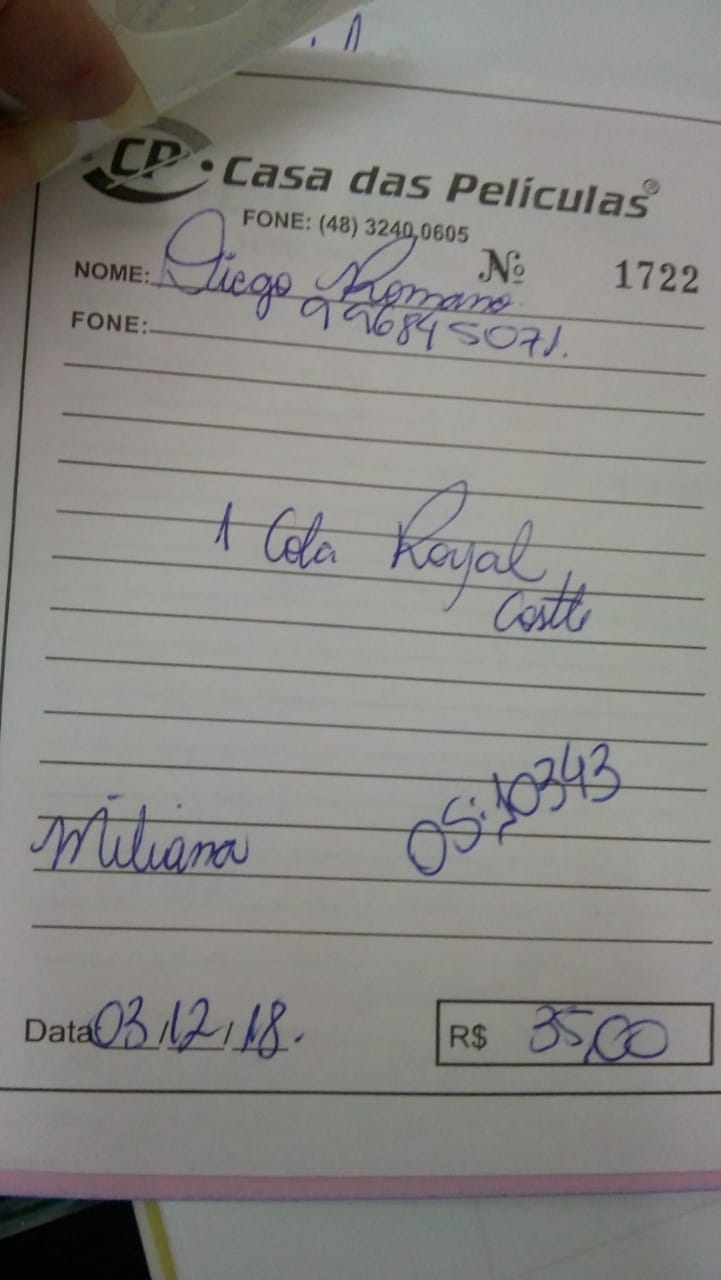 CP · Casa das Películas®
FONE: (48) 3240.0605
Nº 1722
NOME: Diego Romano
FONE: 996845071.
1 Cola Royal
Miliana
OS: 10343
Data 03/12/18.
R$ 35,00